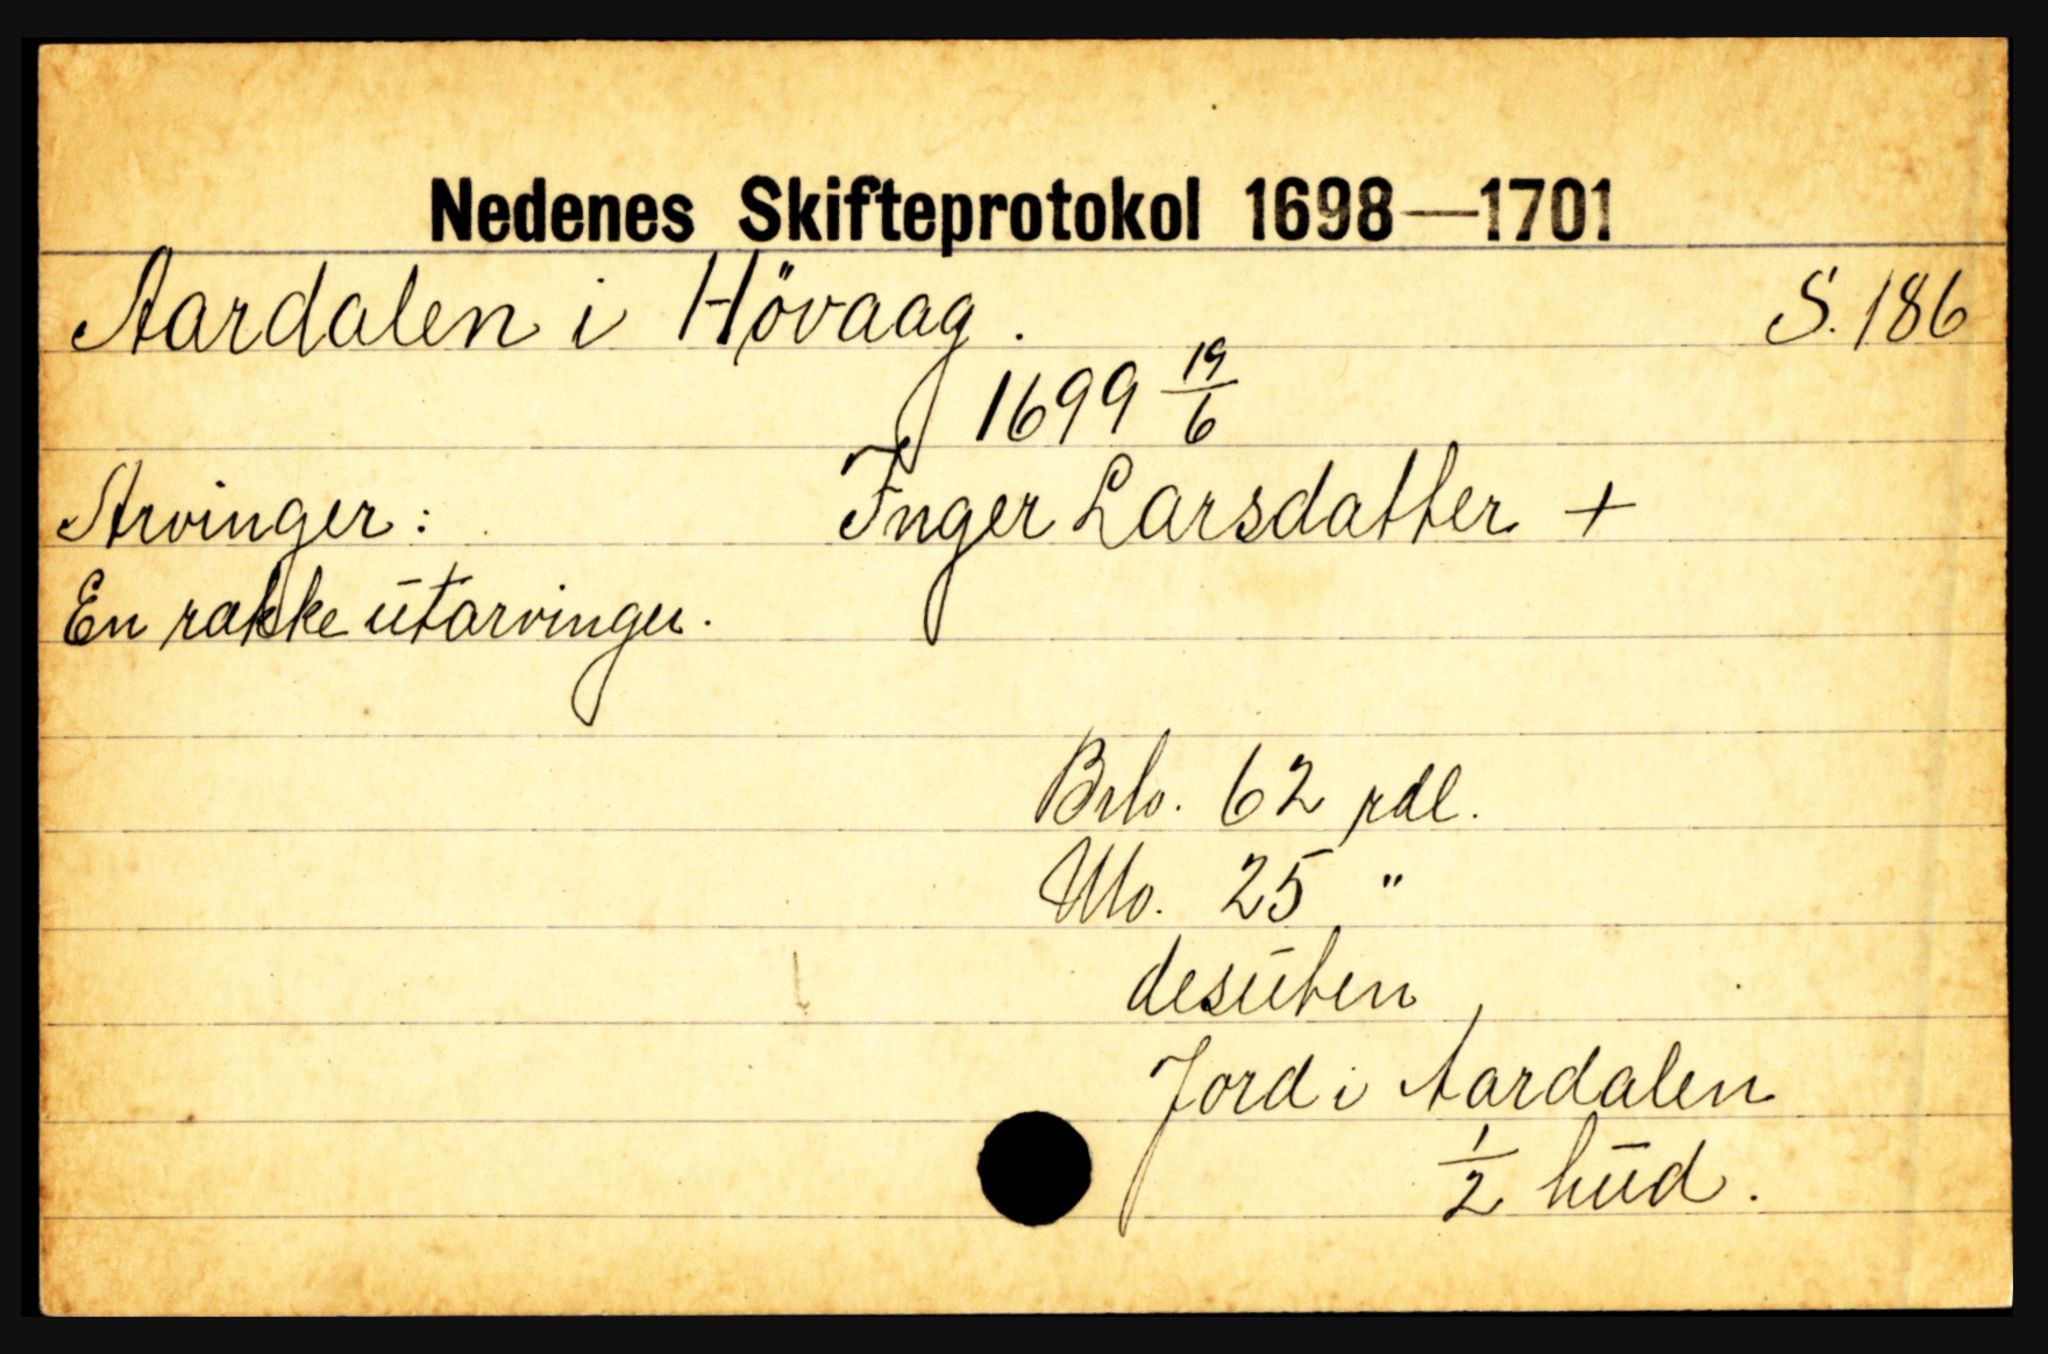 Nedenes Skifteprotokol 1698—1701
Aardalen i Hövaag. S. 186
1699 19/6
Arvinger: Inger Larsdatter +
En rakke utarvinger.
Brto. 62 rdl.
Nto. 25 "
desuten
Jord i Aardalen
1/2 hud.